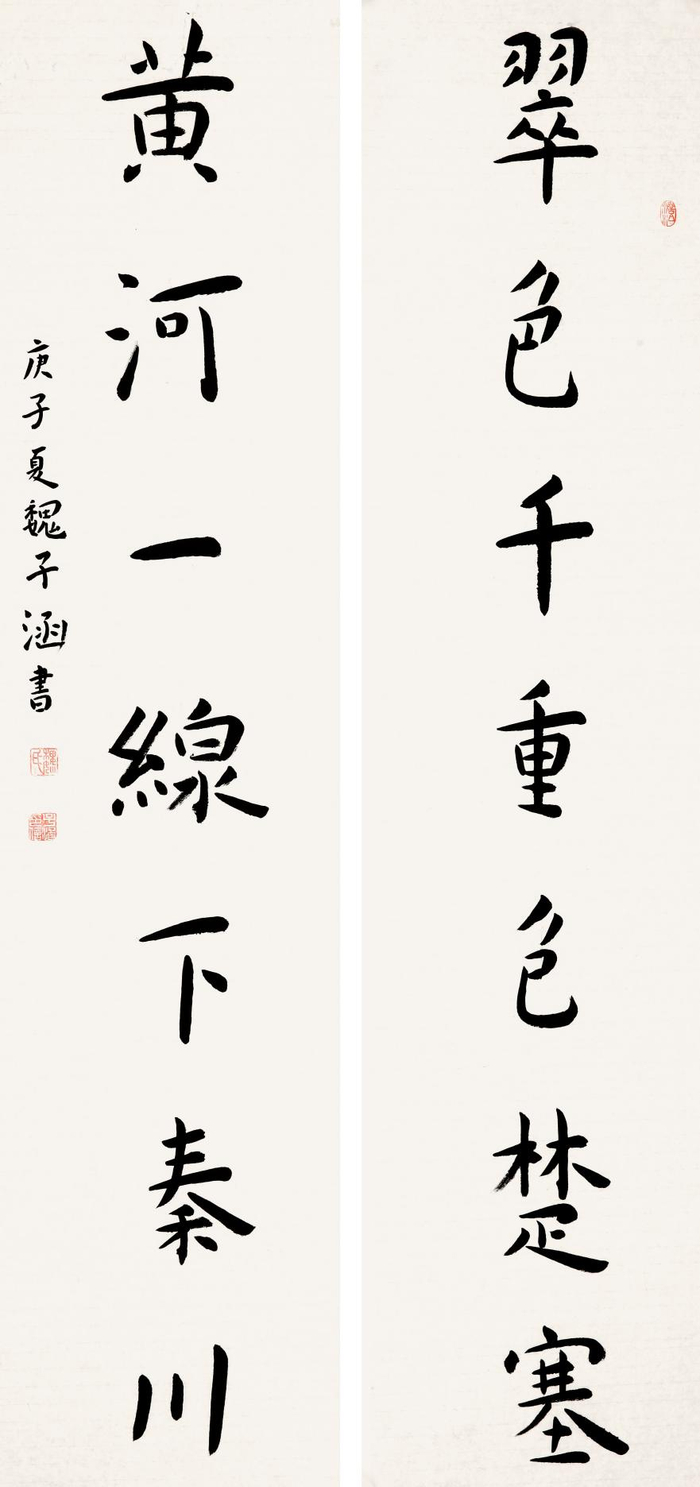 翠色千重包楚塞
黄河一線下秦川
庚子夏魏子涵書